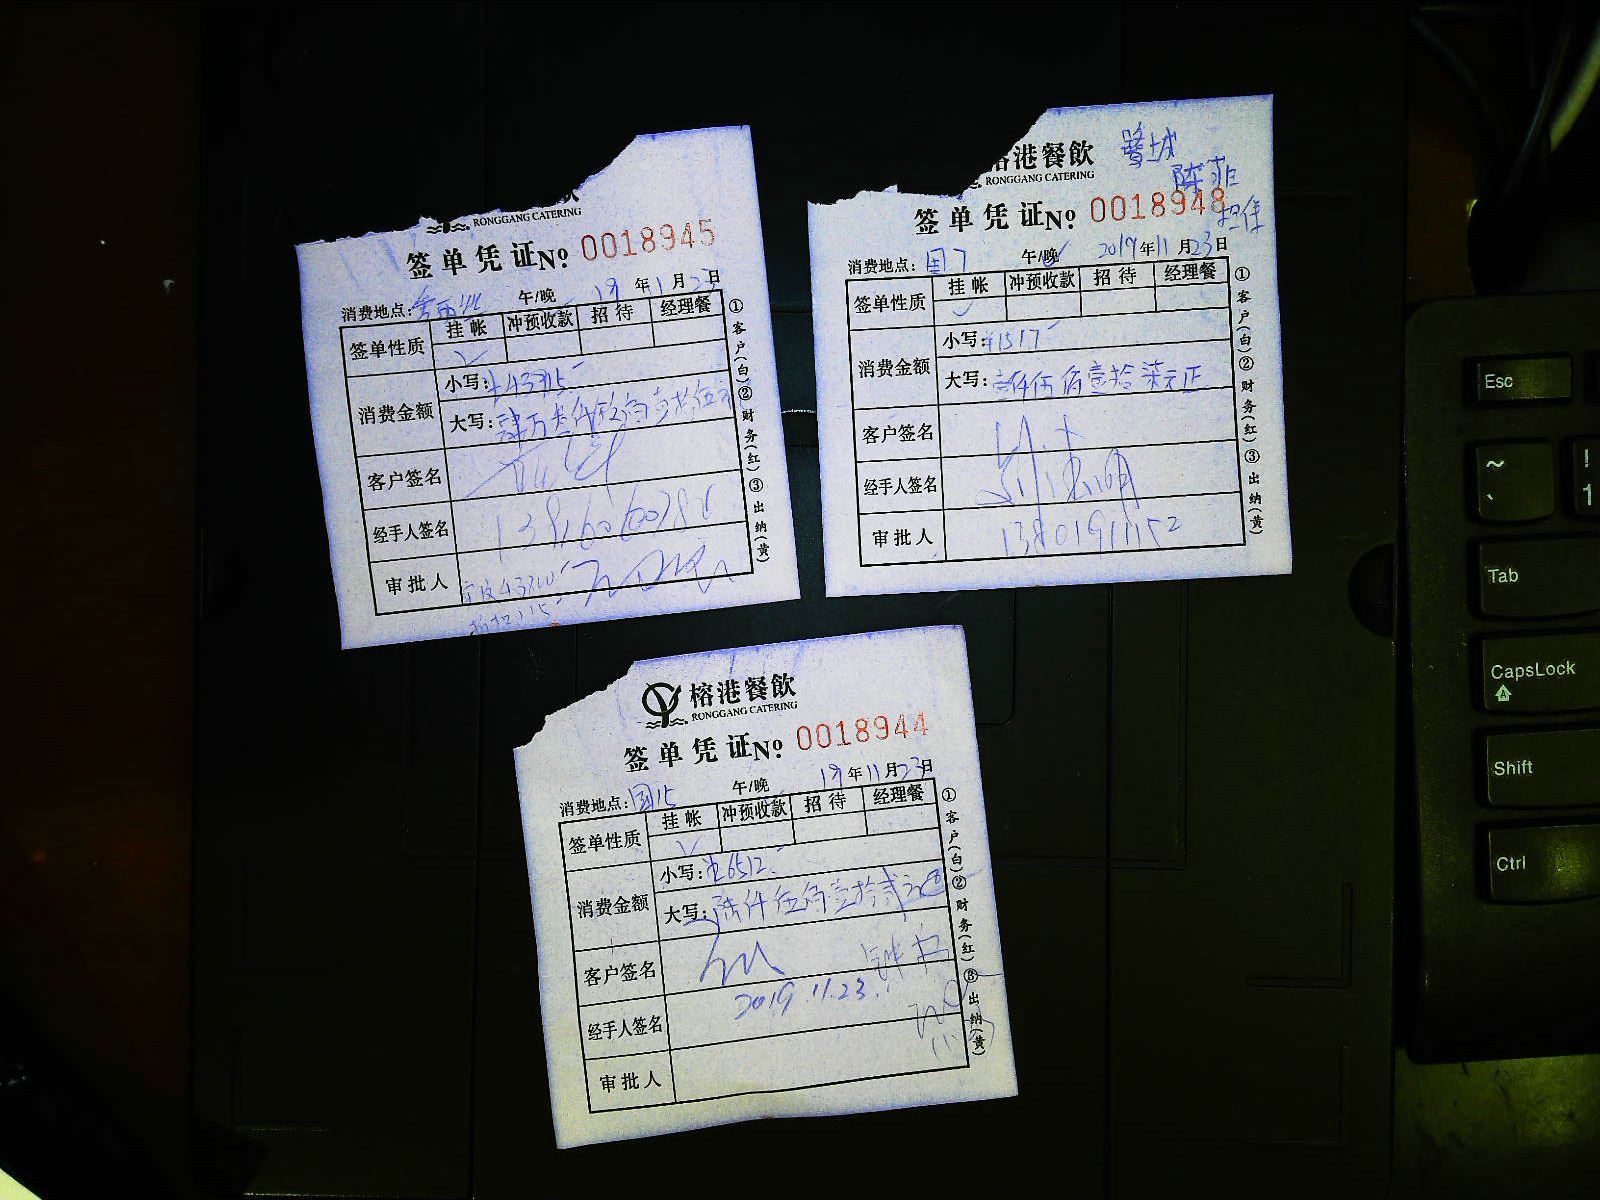 RONGGANG CATERING
签单凭证No. 0018945
消费地点: 午/晚 19年11月23日
签单性质 挂帐 冲预收款 招待 经理餐
消费金额 小写: ¥43715
大写: 肆万叁仟柒佰壹拾伍元
客户签名
经手人签名
审批人
①客户(白)②财务(红)③出纳(黄)
港餐飲
RONGGANG CATERING
鹭城
陈菲
担保
签单凭证No. 0018948
消费地点: 国7 午/晚 2019年11月23日
签单性质 挂帐 冲预收款 招待 经理餐
消费金额 小写: ¥1517
大写: 壹仟伍佰壹拾柒元正
客户签名
经手人签名
审批人 13801911152
①客户(白)②财务(红)③出纳(黄)
榕港餐飲
RONGGANG CATERING
签单凭证No. 0018944
消费地点: 国16 午/晚 19年11月23日
签单性质 挂帐 冲预收款 招待 经理餐
消费金额 小写: ¥6512
大写: 陆仟伍佰壹拾贰元
客户签名
2019.11.23.
经手人签名
审批人
①客户(白)②财务(红)③出纳(黄)
Esc
~
`
!
1
Tab
CapsLock
Shift
Ctrl